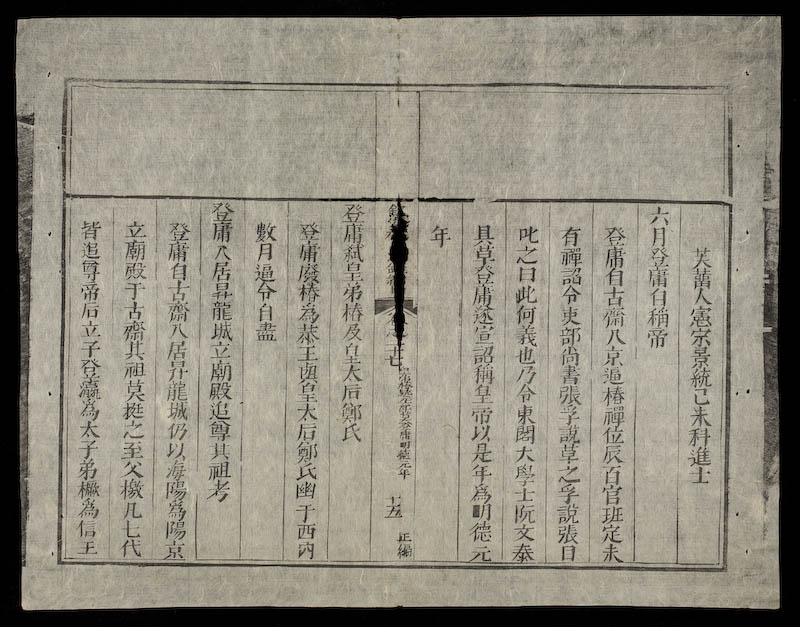 芙蒥人憲宗景統己未科進士
六月登庸自稱帝
登庸自古齋入京逼椿禪位辰百官班定未
有禪詔令吏部尚書張孚說草之孚說張目
叱之曰此何義也乃令東閣大學士阮文泰
具草登庸遂宣詔稱皇帝以是年爲明德元
年
卷之二十七
十五
正編
登庸弑皇弟椿及皇太后鄭氏
登庸廢椿爲恭王與皇太后鄭氏幽于西內
數月逼令自盡
登庸入居昇龍城立廟殿追尊其祖考
登庸自古齋入居昇龍城仍以海陽爲陽京
立廟殿于古齋其祖莫挺之至父檄凡七代
皆追尊帝后立子登瀛爲太子弟橛爲信王